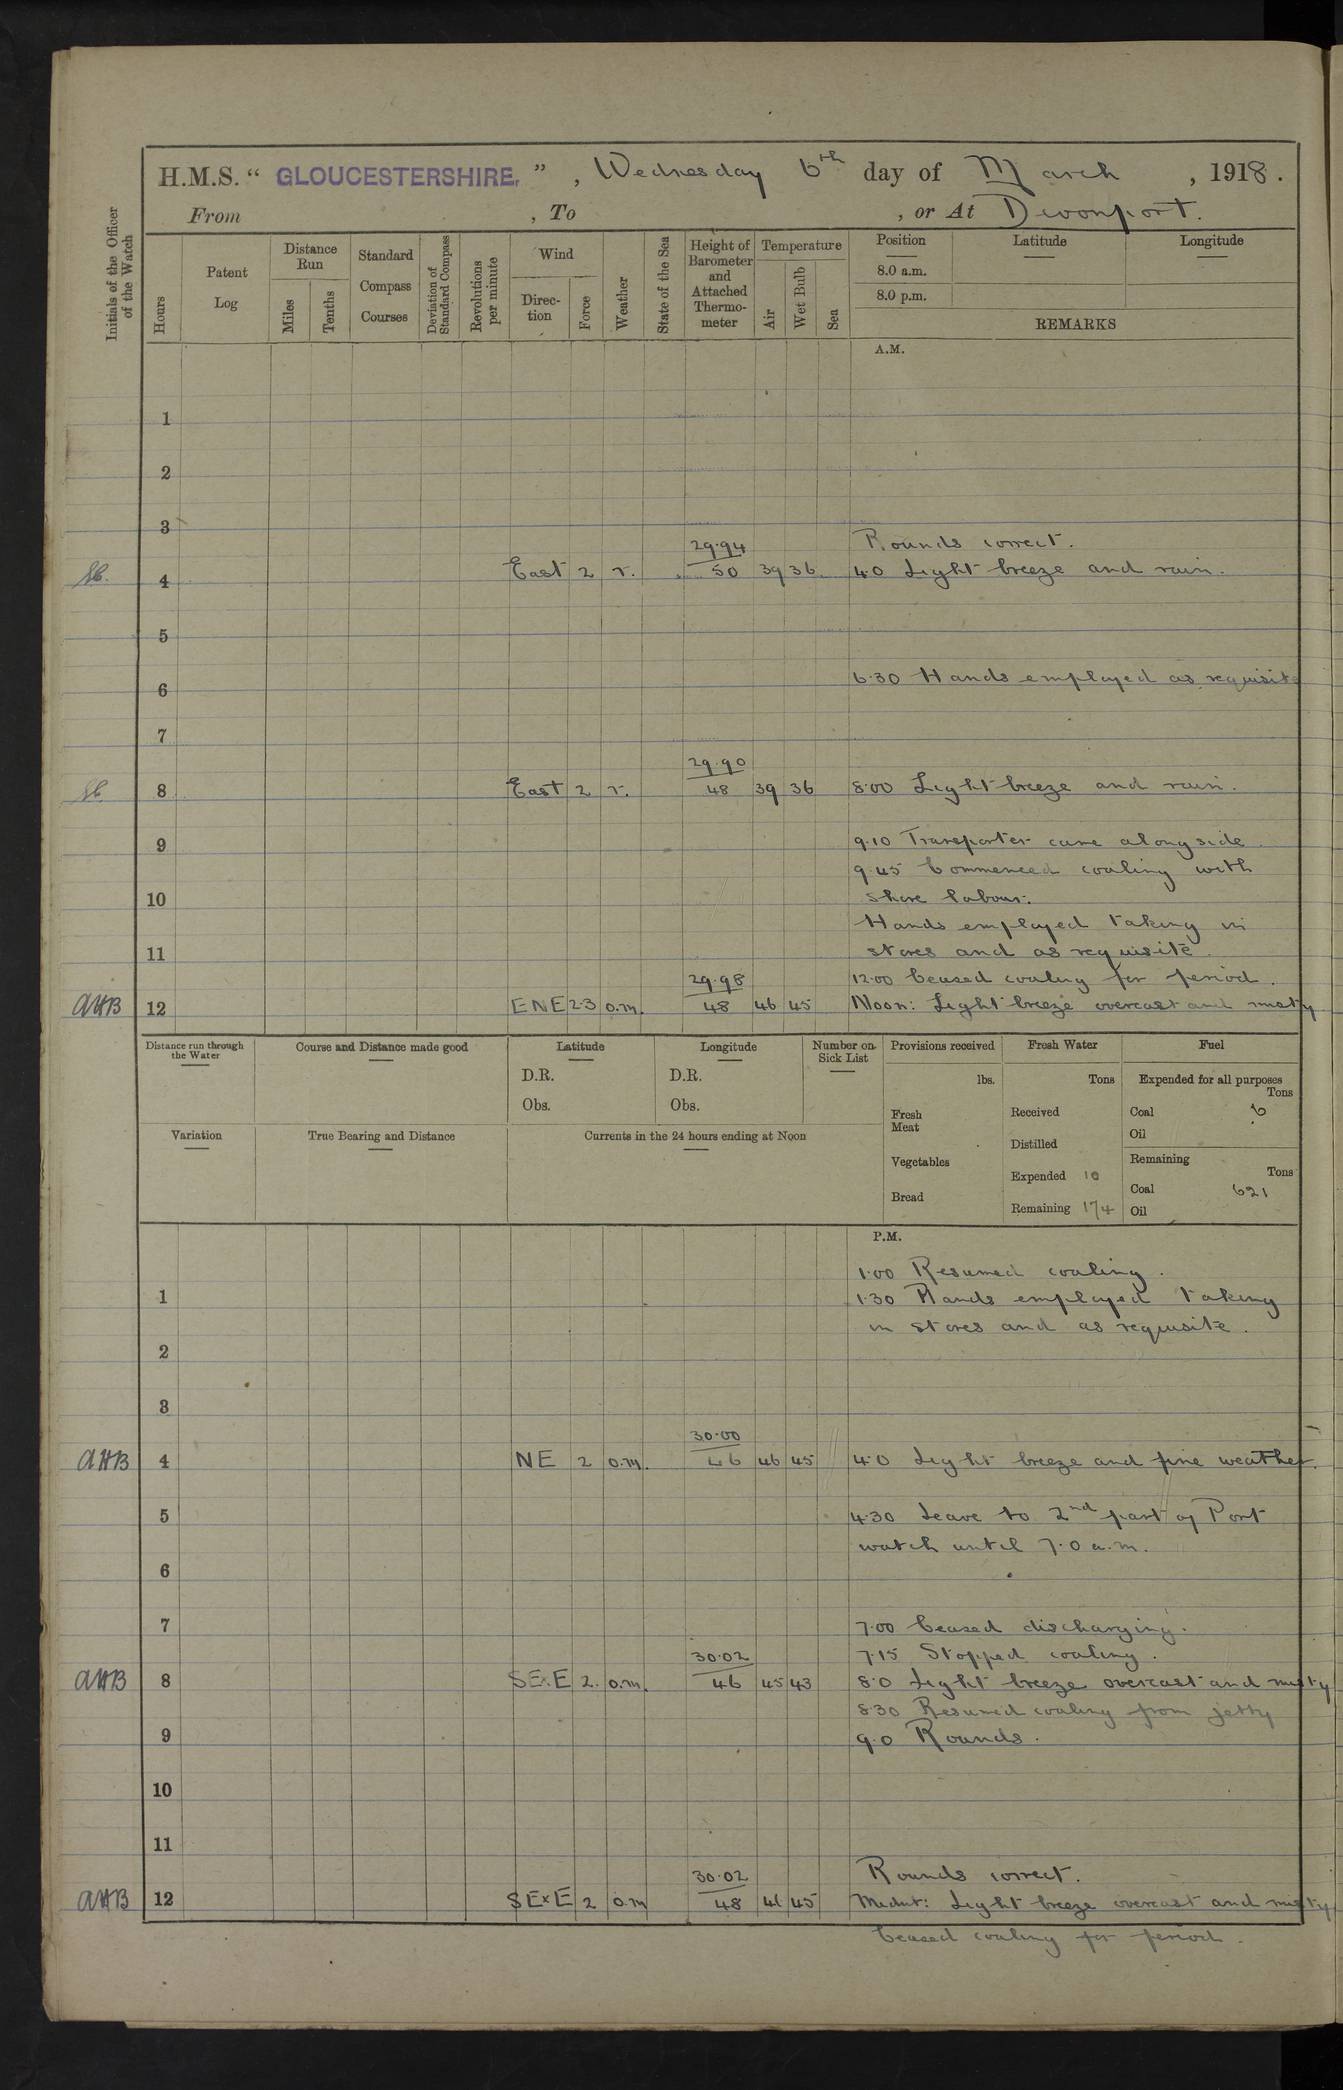 H.M.S. “ GLOUCESTERSHIRE. ” , Wednesday 6th day of March , 1918.
From , To , or At Devonport.
Initials of the Officer of the Watch
Hours
Patent Log
Distance Run
Miles
Tenths
Standard Compass Courses
Deviation of Standard Compass
Revolutions per minute
Wind
Direc-tion
Force
Weather
State of the Sea
Height of Barometer and Attached Thermo-meter
Temperature
Air
Wet Bulb
Sea
Position Latitude Longitude
8.0 a.m.
8.0 p.m.
REMARKS
A.M.
1
2
3
29.94 Rounds correct.
4 East 2 r. 50 39 36 4.0 Light breeze and rain.
5
6.30 Hands employed as requisite
6
7
29.90
8 East 2 r. 48 39 36 8.00 Light breeze and rain.
9 9.10 Transporter came alongside
9.45 Commenced coaling with
10 shore labour.
Hands employed taking in
11 stores and as requisite.
29.98 12.00 Ceased coaling for period.
AHB 12 ENE 2.3 o.m. 48 46 45 Noon: Light breeze overcast and misty
Distance run through the Water
Course and Distance made good
Latitude
D.R.
Obs.
Longitude
D.R.
Obs.
Number on Sick List
Provisions received
lbs.
Fresh Meat
Vegetables
Bread
Fresh Water
Tons
Received
Distilled
Expended 10
Remaining 174
Fuel
Expended for all purposes
Tons
Coal 6
Oil
Remaining
Tons
Coal 621
Oil
Variation
True Bearing and Distance
Currents in the 24 hours ending at Noon
P.M.
1.00 Resumed coaling.
1 1.30 Hands employed taking
in stores and as requisite.
2
3
30.00
AHB 4 NE 2 o.m. 46 46 45 4.0 Light breeze and fine weather.
5 4.30 Leave to 2nd part of Port
watch until 7.0 a.m.
6
7 7.00 Ceased discharging.
30.02 7.15 Stopped coaling.
AHB 8 SE.E 2. o.m. 46 45 43 8.0 Light breeze overcast and misty
8.30 Resumed coaling from jetty
9 9.0 Rounds.
10
11
30.02 Rounds correct.
AHB 12 SExE 2 o.m 48 45 Midnt: Light breeze overcast and misty
Ceased coaling for period.